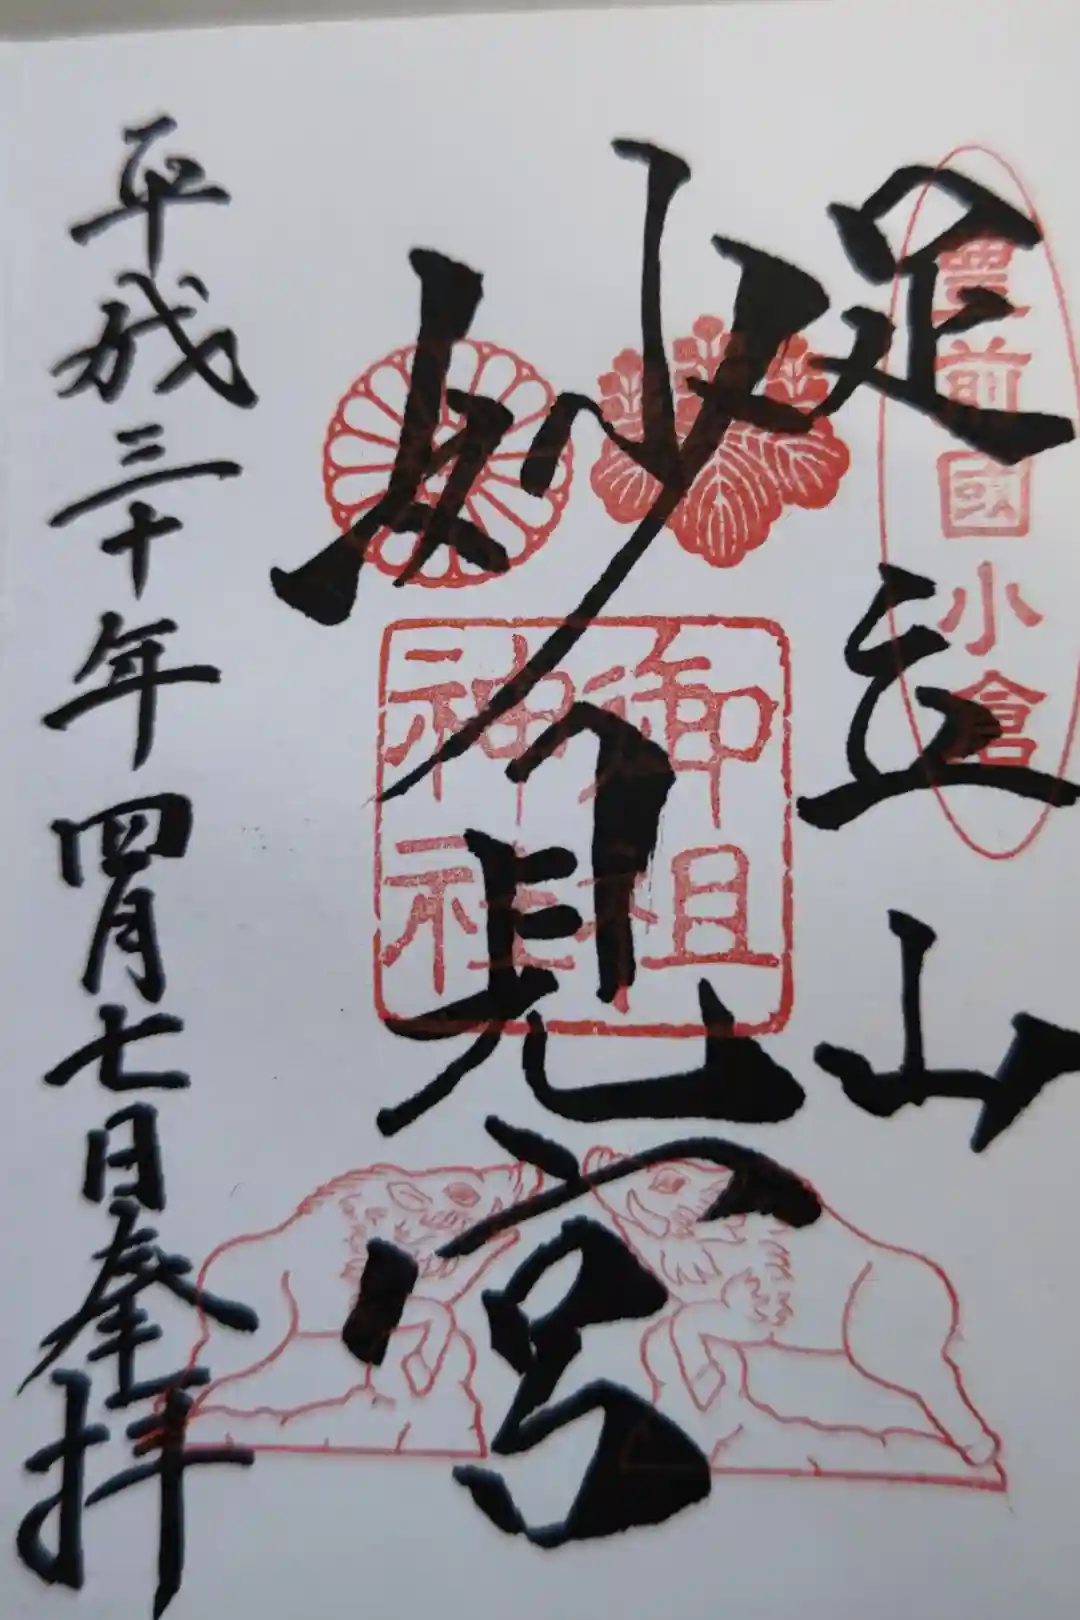 足立山
豊前國小倉
妙見宮
御祖
神社
平成三十年四月七日奉拝